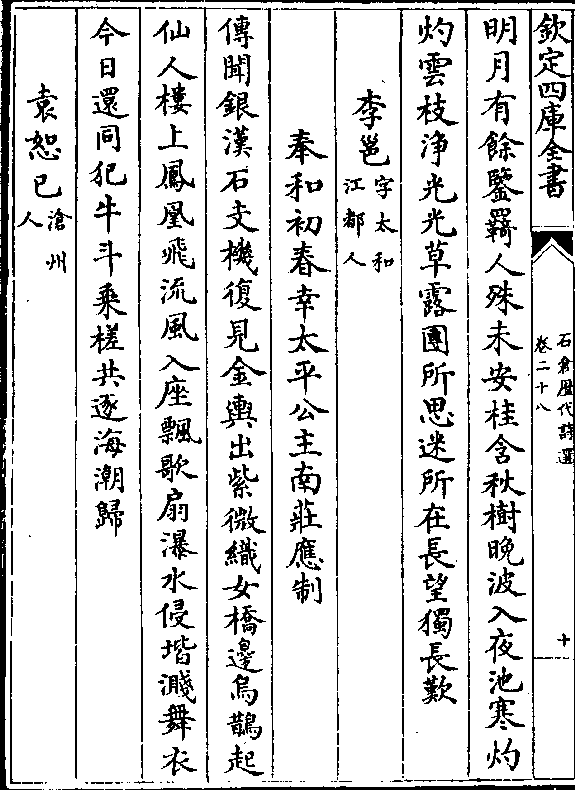 欽定四庫全書
石倉歷代詩選
卷二十八
十
明月有餘鑒羇人殊未安桂含秋樹晚波入夜池寒灼
灼雲枝浄光光草露團所思迷所在長望獨長歎
李邕字太和江都人
奉和初春幸太平公主南莊應制
傳聞銀漢石支機復見金輿出紫微織女橋邊烏鵲起
仙人樓上鳳凰飛流風入座飄歌扇瀑水侵堦濺舞衣
今日還同犯牛斗乘槎共逐海潮歸
袁恕已滄州人